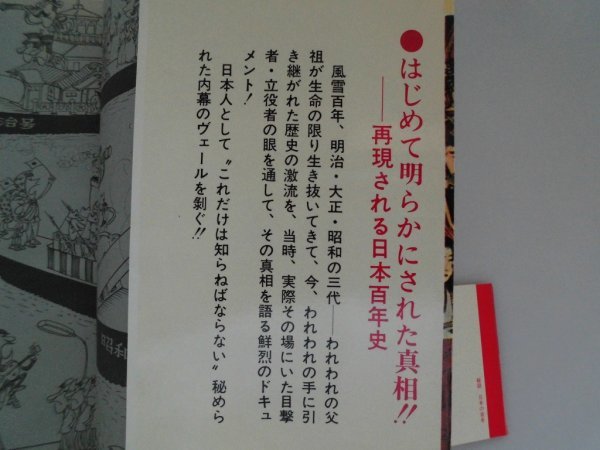 ●はじめて明らかにされた真相!!
──再現される日本百年史
風雪百年、明治・大正・昭和の三代──われわれの父
祖が生命の限り生き抜いてきて、今、われわれの手に引
き継がれた歴史の激流を、当時、実際その場にいた目撃
者・立役者の眼を通して、その真相を語る鮮烈のドキュ
メント!
日本人として〝これだけは知らねばならない〟秘めら
れた内幕のヴェールを剝ぐ!!
治号
昭和